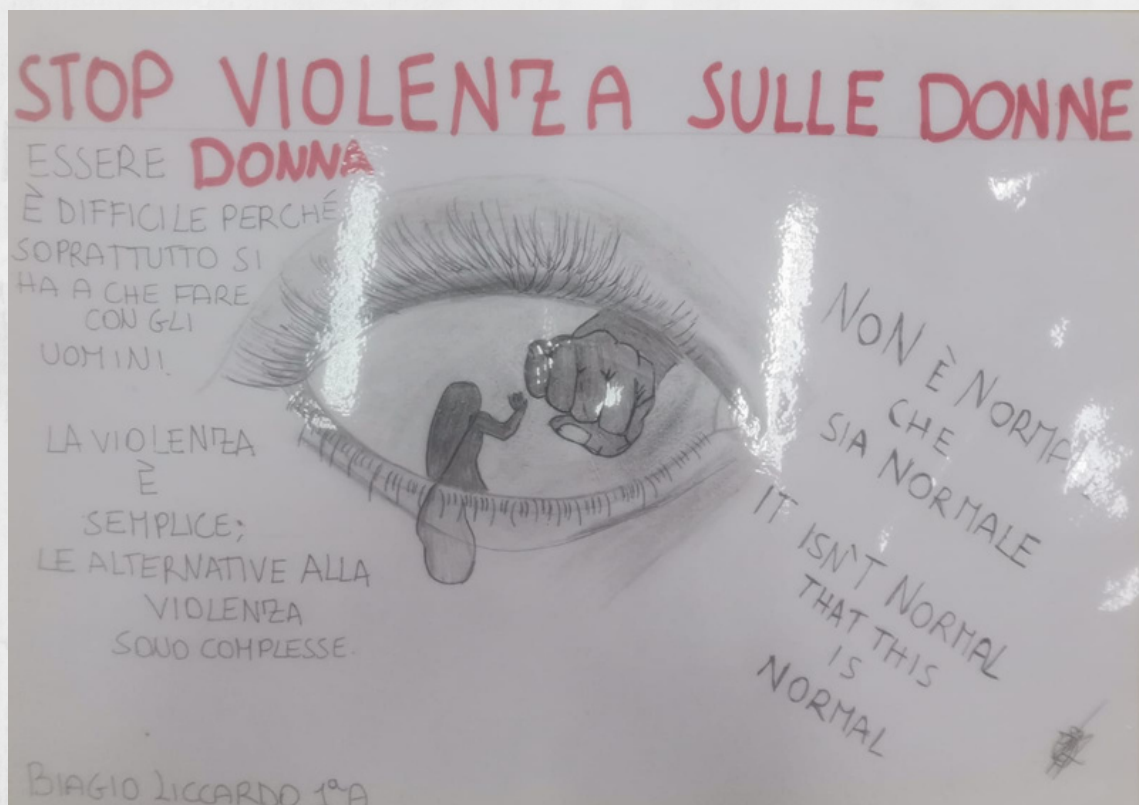 STOP VIOLENZA SULLE DONNE
ESSERE DONNA
È DIFFICILE PERCHÉ
SOPRATTUTTO SI
HA A CHE FARE
CON GLI
UOMINI.
LA VIOLENZA
È
SEMPLICE;
LE ALTERNATIVE ALLA
VIOLENZA
SONO COMPLESSE.
NON È
CHE
SIA NORMALE
IT ISN'T NORMAL
THAT THIS
IS
NORMAL
BIAGIO LICCARDO 1ªA